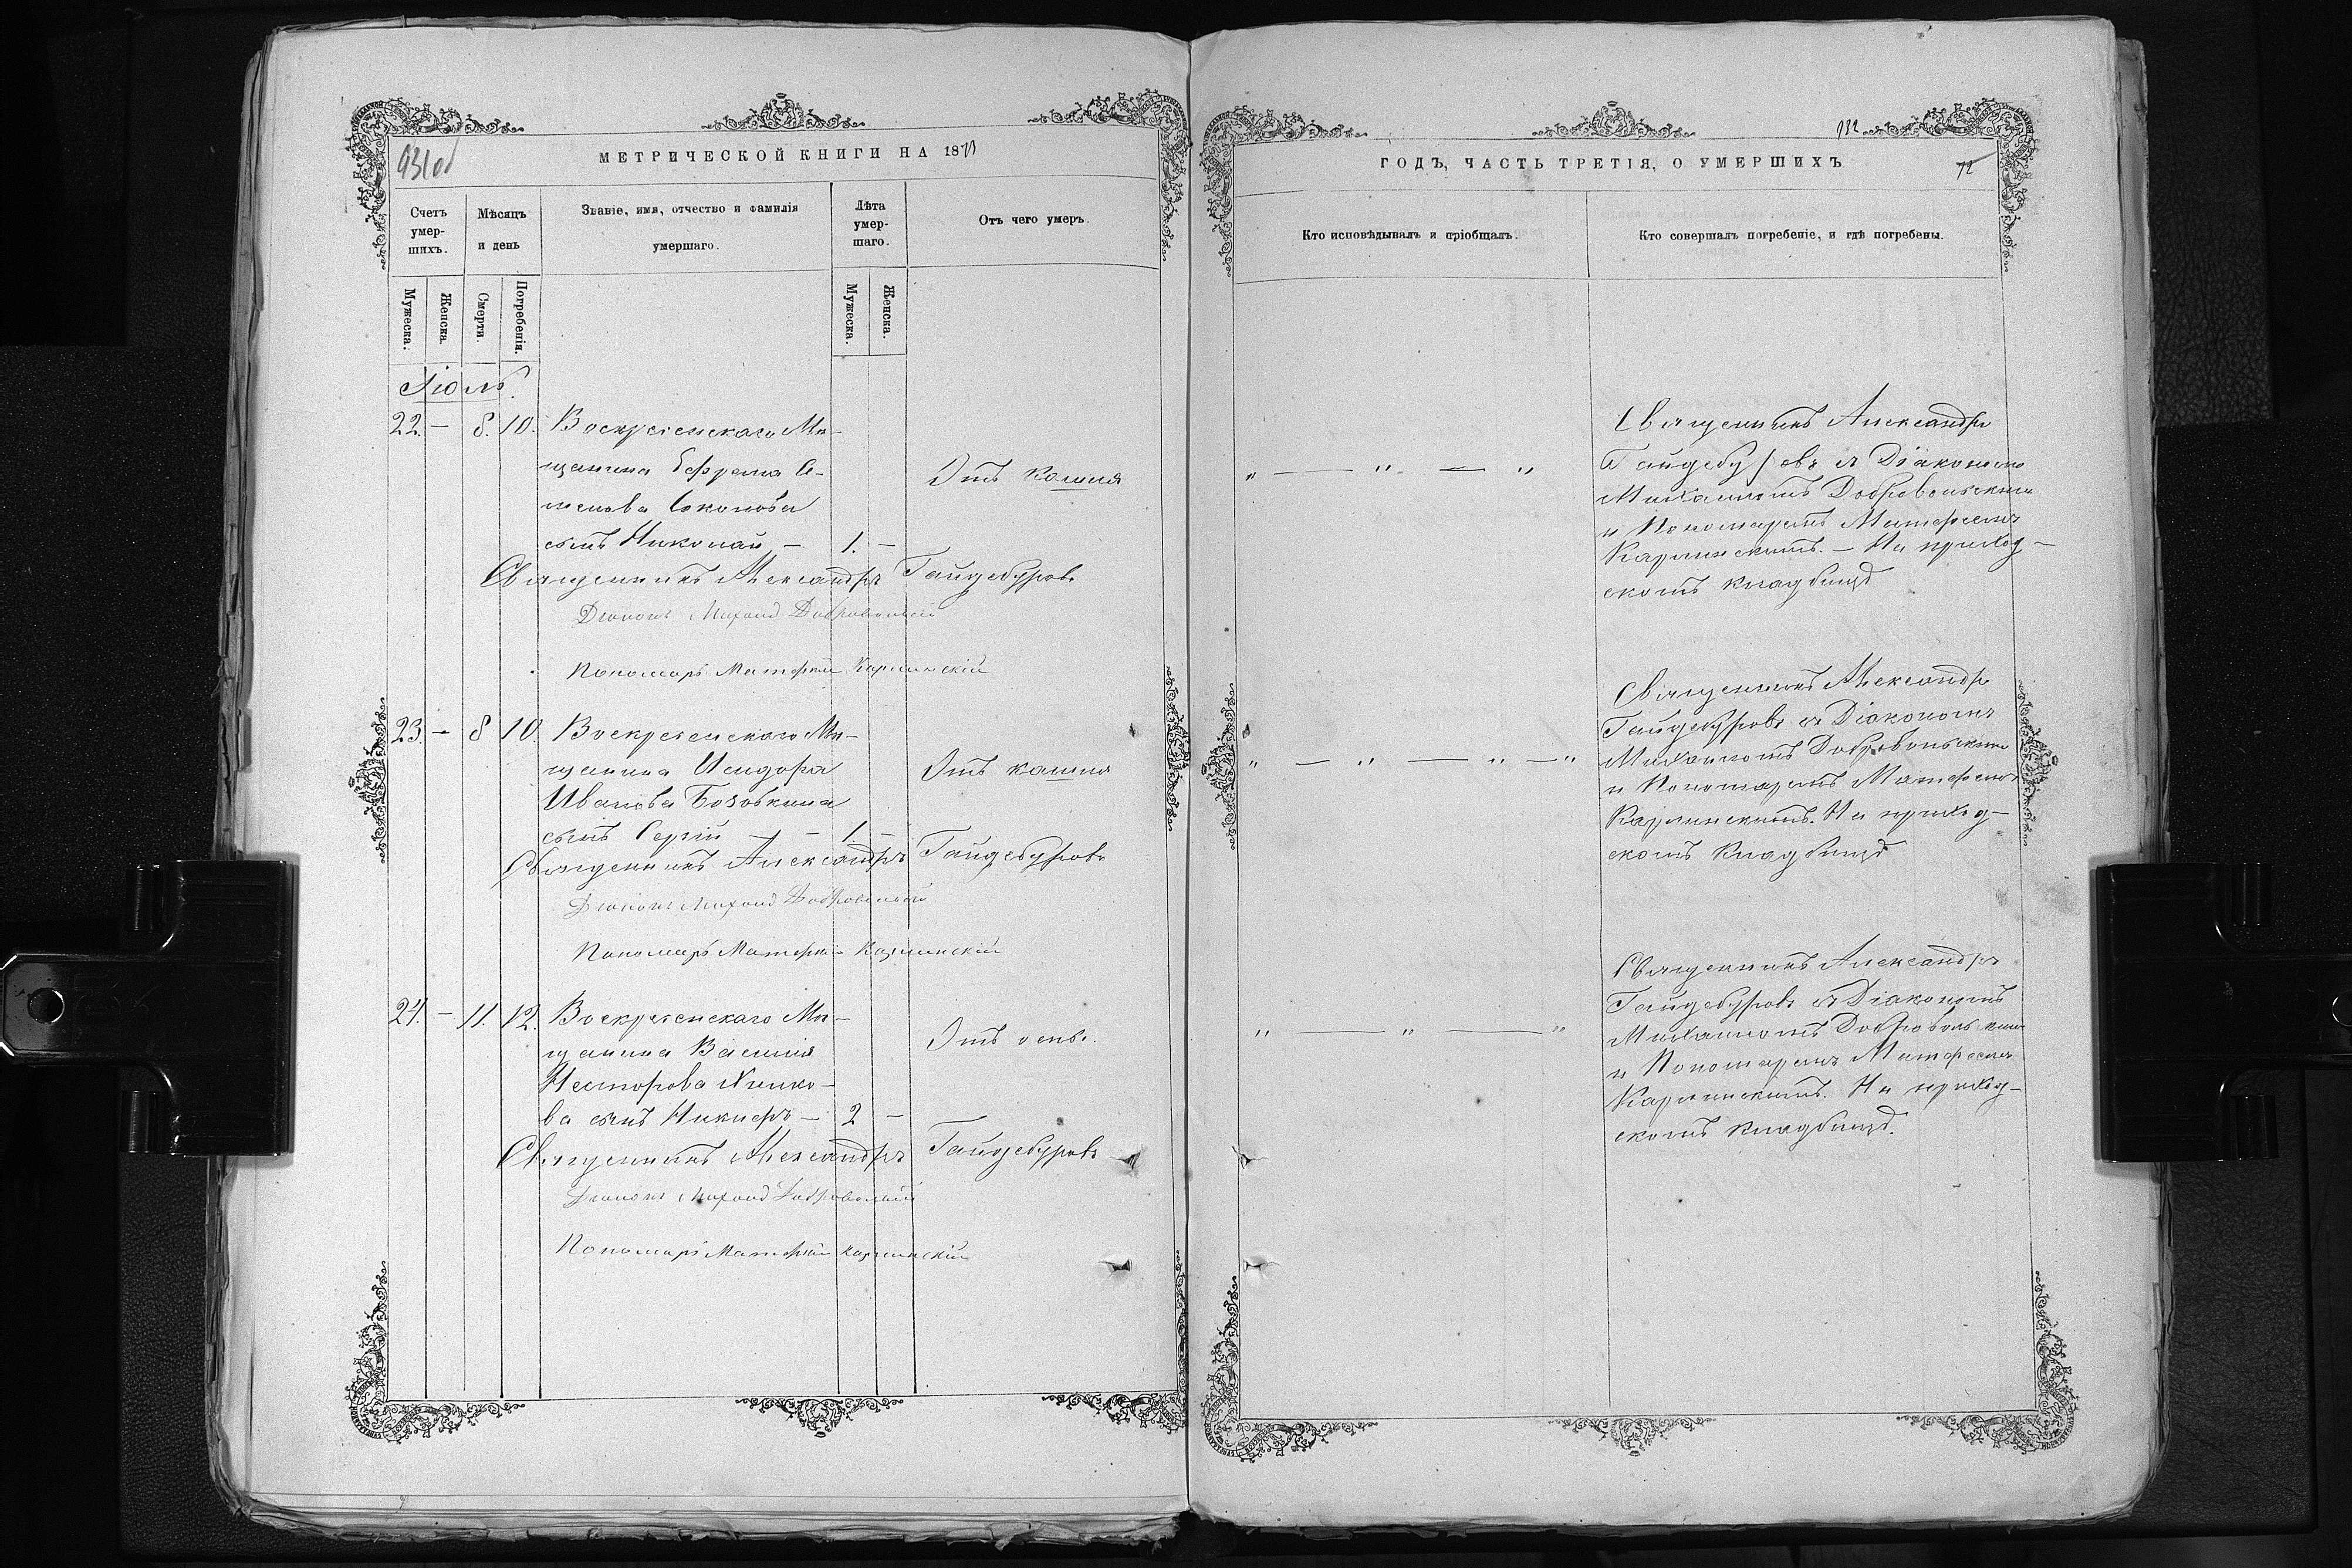 931 об
МЕТРИЧЕСКОЙ КНИГИ НА 1873
Счетъ умер-шихъ.
Мѣсяцъ и день
Званіе, имя, отчество и фамилія умершаго.
Лѣта умер-шаго.
Отъ чего умеръ.
Мужеска.
Женска.
Смерти.
Погребенія.
Мужеска.
Женска.
Іюль.
22. — 8. 10. Воскресенскаго Мѣ-
щанина Ефрема С-
Соколова
сынъ Николай — 1. —
Отъ кашля
Священникъ Александръ Гайдебуровъ
Діаконъ Михаилъ Добровольскій
Пономарь Матфей Карлинскій
23. — 8 10. Воскресенскаго Мѣ-
щанина Исидора
Иванова
сынъ Сергій — — 1. —
Отъ кашля
Священникъ Александръ Гайдебуровъ
Діаконъ Михаилъ Добровольскій
Пономарь Матфей Карлинскій
24. — 11. 12. Воскресенскаго Мѣ-
щанина Василія
Несторова
ва сынъ Никифръ — 2 —
Отъ оспы.
Священникъ Александръ Гайдебуровъ
Діаконъ Михаилъ Добровольскій
Пономарь Матфей Карлинскій
932
ГОДЪ, ЧАСТЬ ТРЕТІЯ, О УМЕРШИХЪ
72
Кто исповѣдывалъ и пріобщалъ.
Кто совершалъ погребеніе, и гдѣ погребены.
Священникъ Александръ
Гайдебуровъ съ Діакономъ
" — " — "
Михаиломъ Добровольскимъ
и Пономаремъ Матфеемъ
Карлинскимъ. — На приход-
скомъ кладбищѣ
Священникъ Александръ
Гайдебуровъ съ Діакономъ
" — " — " — "
Михаиломъ Добровольскимъ
и Пономаремъ Матфеемъ
Карлинскимъ. На приход-
скомъ кладбищѣ
Священникъ Александръ
Гайдебуровъ съ Діакономъ
" — " — "
Михаиломъ Добровольскимъ
и Пономаремъ Матфеемъ
Карлинскимъ. На приход-
скомъ кладбищѣ.